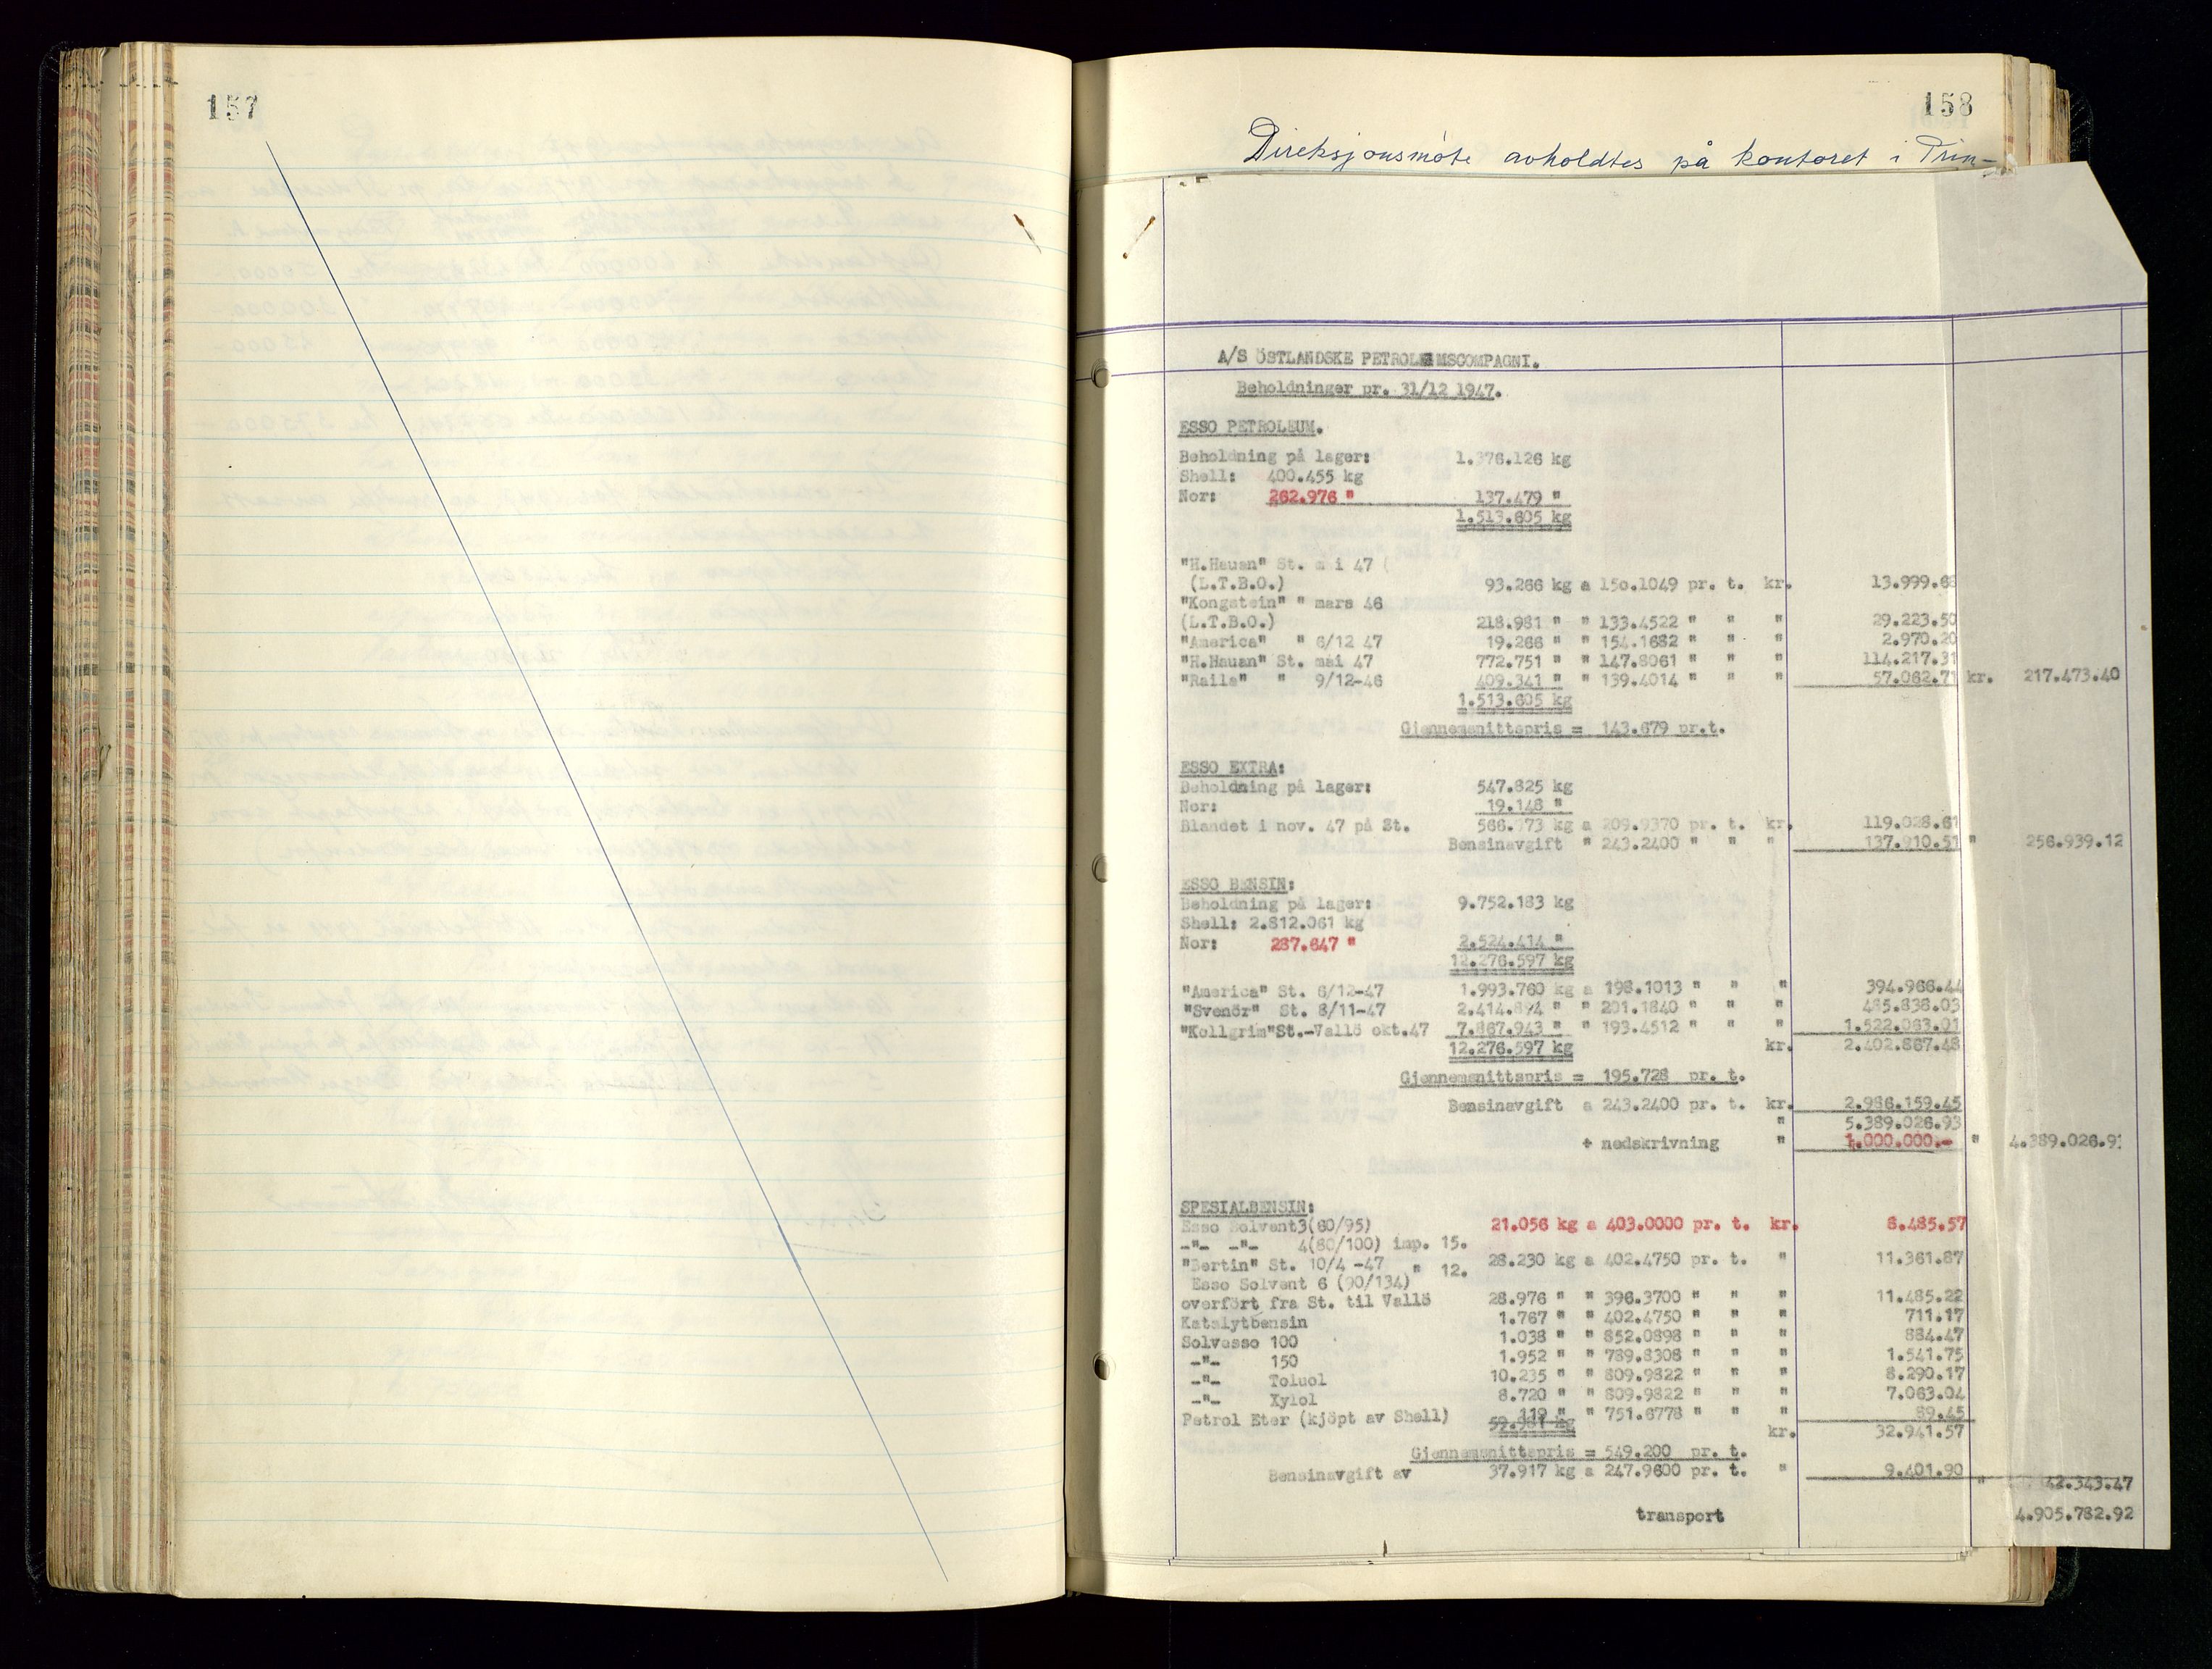 157
158
Direksjonsmöte avholdtes på kontoret i Prin-
A/S ÖSTLANDSKE PETROLEUMSCOMPAGNI.
Beholdninger pr. 31/12 1947.
ESSO PETROLEUM.
Beholdning på lager: 1.376.126 kg
Shell: 400.455 kg
Nor: 262.976 " 137.479 "
1.513.605 kg
"H.Hauan" St. mai 47 (
(L.T.B.O.) 93.266 kg a 150.1049 pr. t. kr. 13.999.68
"Kongstein" " mars 46
(L.T.B.O.) 218.981 " " 133.4522 " " " 29.223.50
"America" " 6/12 47 19.266 " " 154.1682 " " " 2.970.20
"H.Hauan" St. mai 47 772.751 " " 147.8061 " " " 114.217.31
"Raila" " 9/12-46 409.341 " " 139.4014 " " " 57.062.71 kr. 217.473.40
1.513.605 kg
Gjennemsnittspris = 143.679 pr.t.
ESSO EXTRA:
Beholdning på lager: 547.825 kg
Nor: 19.148 "
Blandet i nov. 47 på St. 566.973 kg a 209.9370 pr. t. kr. 119.028.61
Bensinavgift " 243.2400 " " " 137.910.51 " 256.939.12
ESSO BENSIN:
Beholdning på lager: 9.752.183 kg
Shell: 2.812.061 kg
Nor: 287.647 " 2.524.414 "
12.276.597 kg
"America" St. 6/12-47 1.993.760 kg a 198.1013 " " " 394.966.44
"Svenör" St. 8/11-47 2.414.894 " " 201.1840 " " " 485.838.03
"Kollgrim"St.-Vallö okt.47 7.867.943 " " 193.4512 " " " 1.522.063.01
12.276.597 kg kr. 2.402.867.48
Gjennemsnittspris = 195.728 pr. t.
Bensinavgift a 243.2400 pr. t. kr. 2.986.159.45
" 5.389.026.93
÷ nedskrivning " 1.000.000.- " 4.389.026.93
SPESIALBENSIN:
Esso Solvent3(60/95) 21.056 kg a 403.0000 pr. t. kr. 8.485.57
-"- -"- 4(80/100) imp. 15.
"Bertin" St. 10/4 -47 " 12. 28.230 kg a 402.4750 pr. t. " 11.361.87
Esso Solvent 6 (90/134)
overfört fra St. til Vallö 28.976 " " 396.3700 " " " 11.485.22
Katalytbensin 1.767 " " 402.4750 " " " 711.17
Solvesso 100 1.038 " " 852.0898 " " " 884.47
-"- 150 1.952 " " 789.8308 " " " 1.541.75
-"- Toluol 10.235 " " 809.9822 " " " 8.290.17
-"- Xylol 8.720 " " 809.9822 " " " 7.063.04
Petrol Eter (kjöpt av Shell) 119 " " 751.6778 " " " 89.45
59.981 kg kr. 32.941.57
Gjennemsnittspris = 549.200 pr. t.
Bensinavgift av 37.917 kg a 247.9600 pr. t. " 9.401.90
" 42.343.47
transport 4.905.782.92